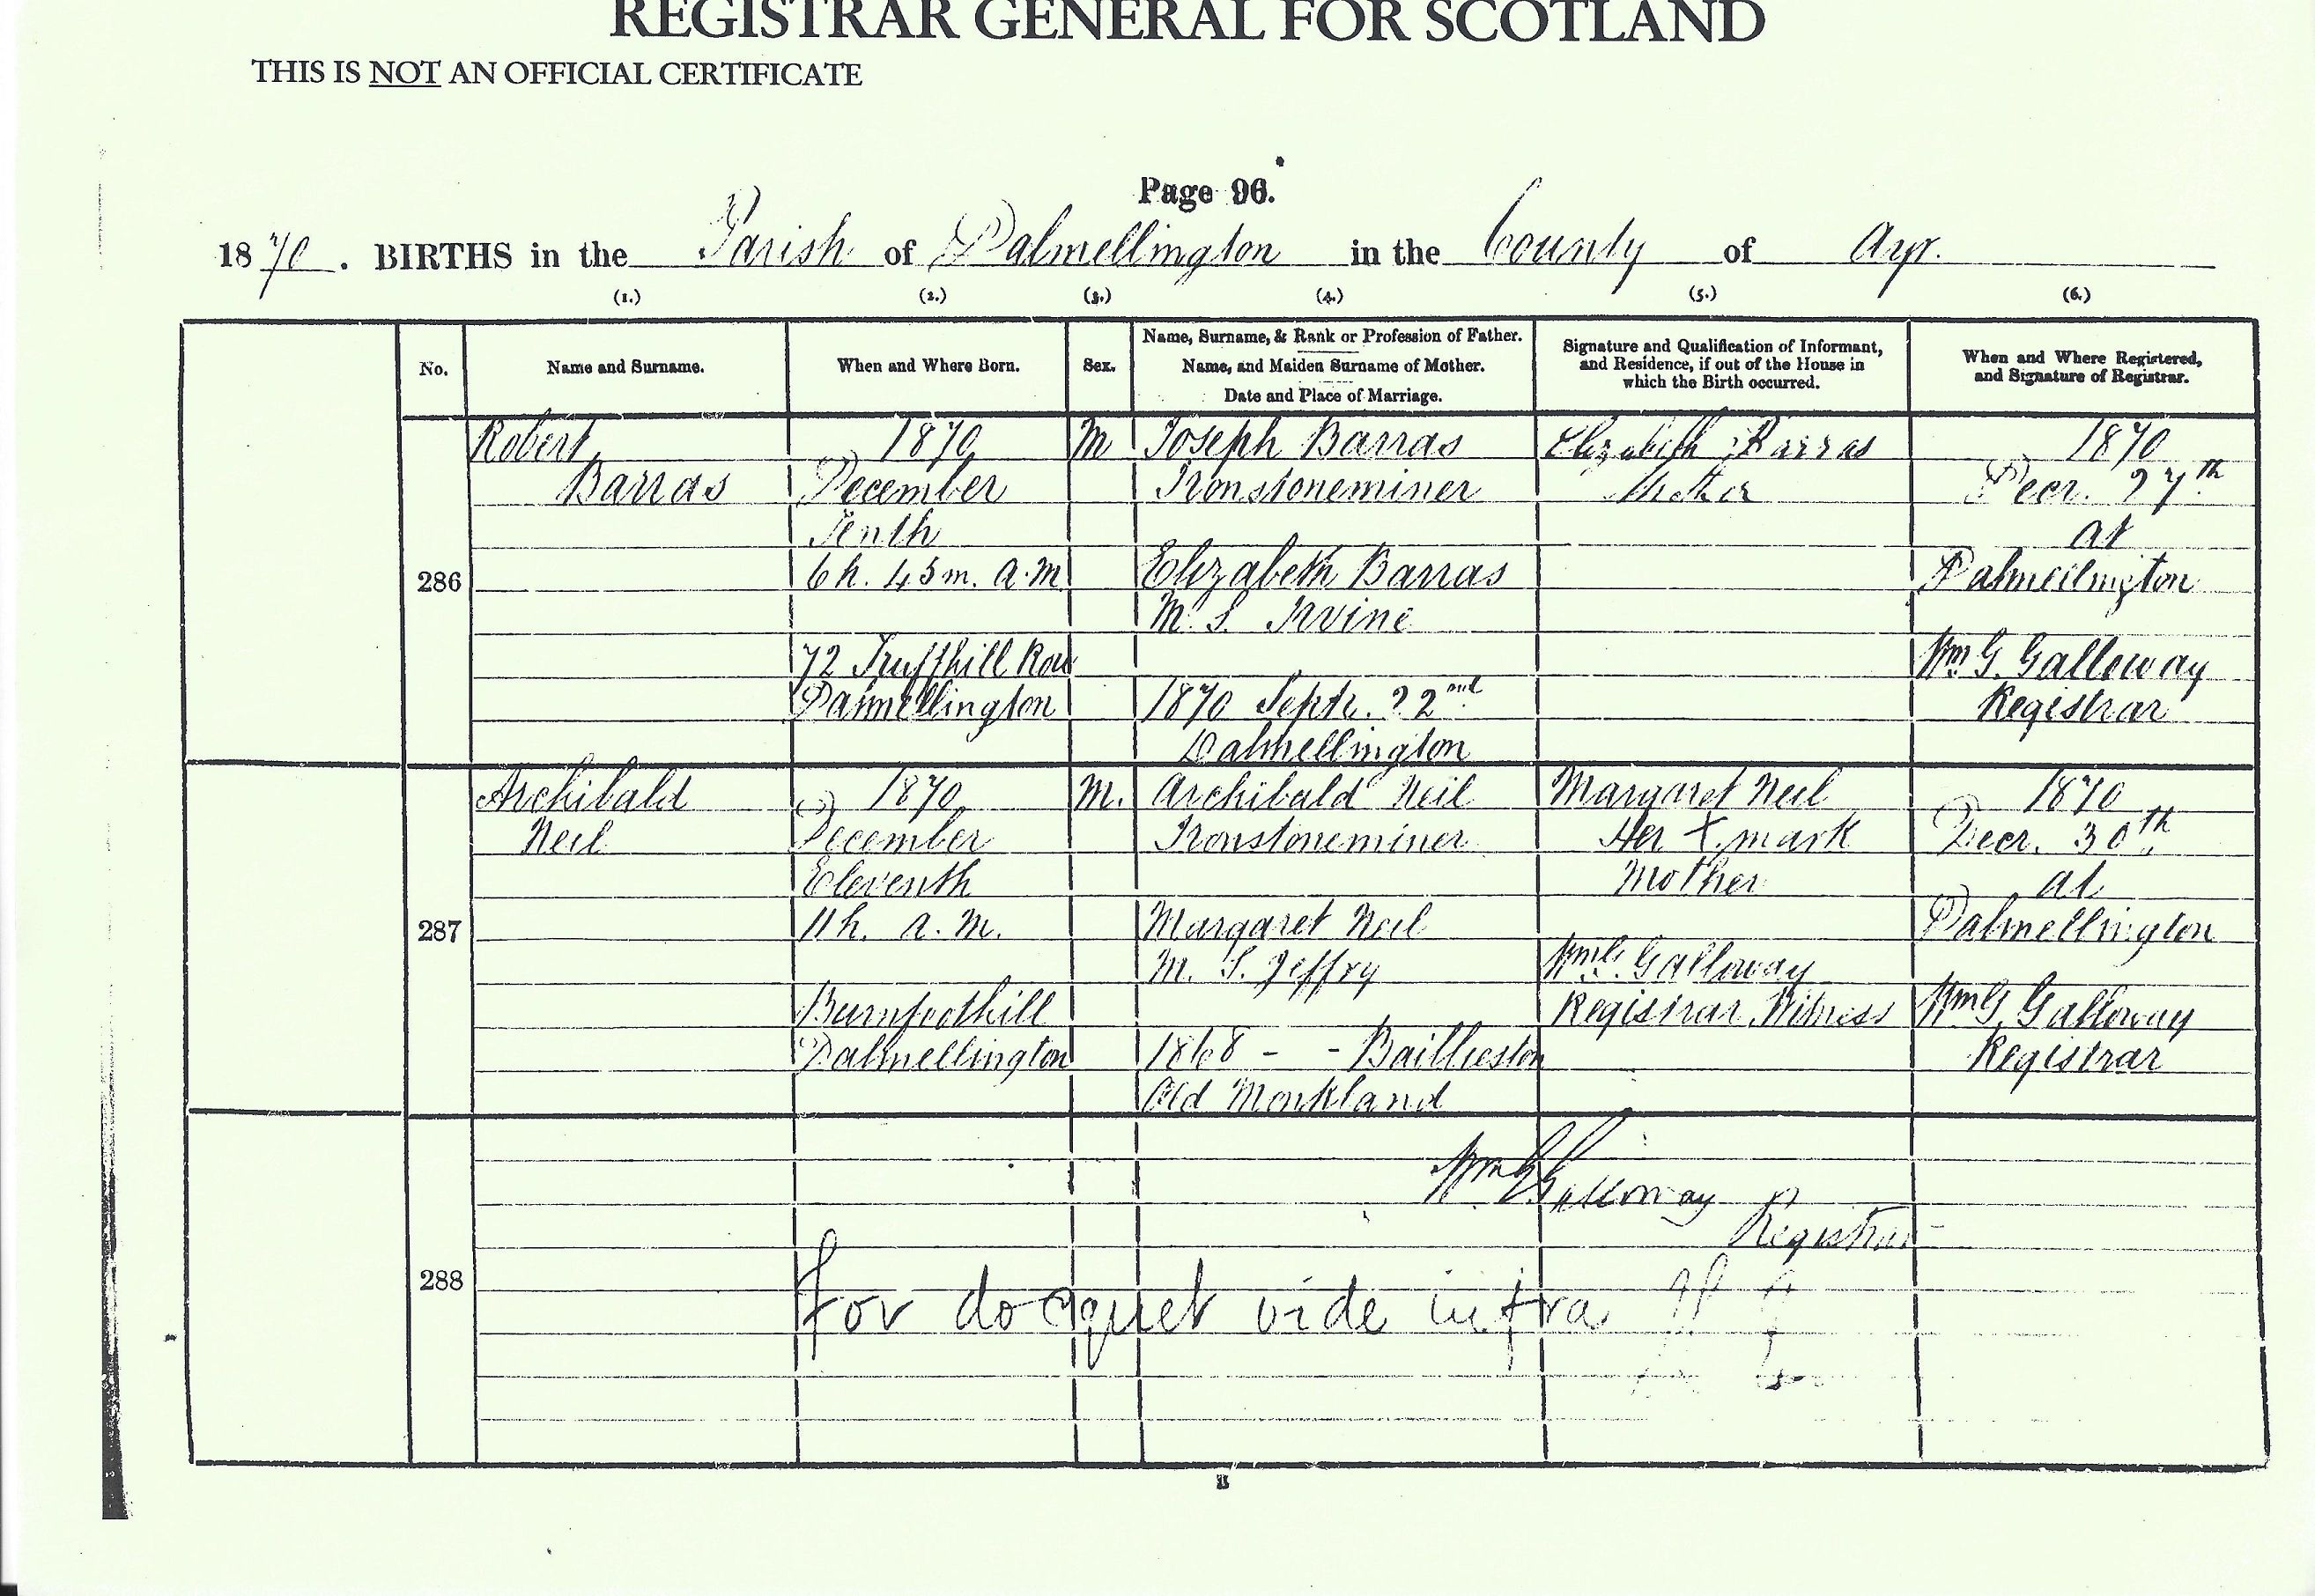 REGISTRAR GENERAL FOR SCOTLAND
THIS IS NOT AN OFFICIAL CERTIFICATE
Page 96.
1870. BIRTHS in the Parish of Dalmellington in the County of Ayr.
(1.) (2.) (3.) (4.) (5.) (6.)
No.
Name and Surname.
When and Where Born.
Sex.
Name, Surname, & Rank or Profession of Father.
Name, and Maiden Surname of Mother.
Date and Place of Marriage.
Signature and Qualification of Informant,
and Residence, if out of the House in
which the Birth occurred.
When and Where Registered,
and Signature of Registrar.
286
Robert
Barras
1870
December
Tenth
6h. 45m. a.m
72 Truffhill Row
Dalmellington
M
Joseph Barras
Ironstoneminer
Elizabeth Barras
M. S. Irvine
1870 Septr. 22nd
Dalmellington
Elizabeth Barras
Mother
1870
Decr. 27th
at
Dalmellington
Wm G. Galloway
Registrar
287
Archibald
Neil
1870
December
Eleventh
11h. a.m.
Burnfoothill
Dalmellington
M.
Archibald Neil
Ironstoneminer
Margaret Neil
M. S. Jeffry
1868 - - Baillieston
Old Monkland
Margaret Neil
Her x mark
Mother
Wm G. Galloway
Registrar, Witness
1870
Decr. 30th
at
Dalmellington
Wm G. Galloway
Registrar
288
Wm G Galloway
Registrar
For docquet vide infra